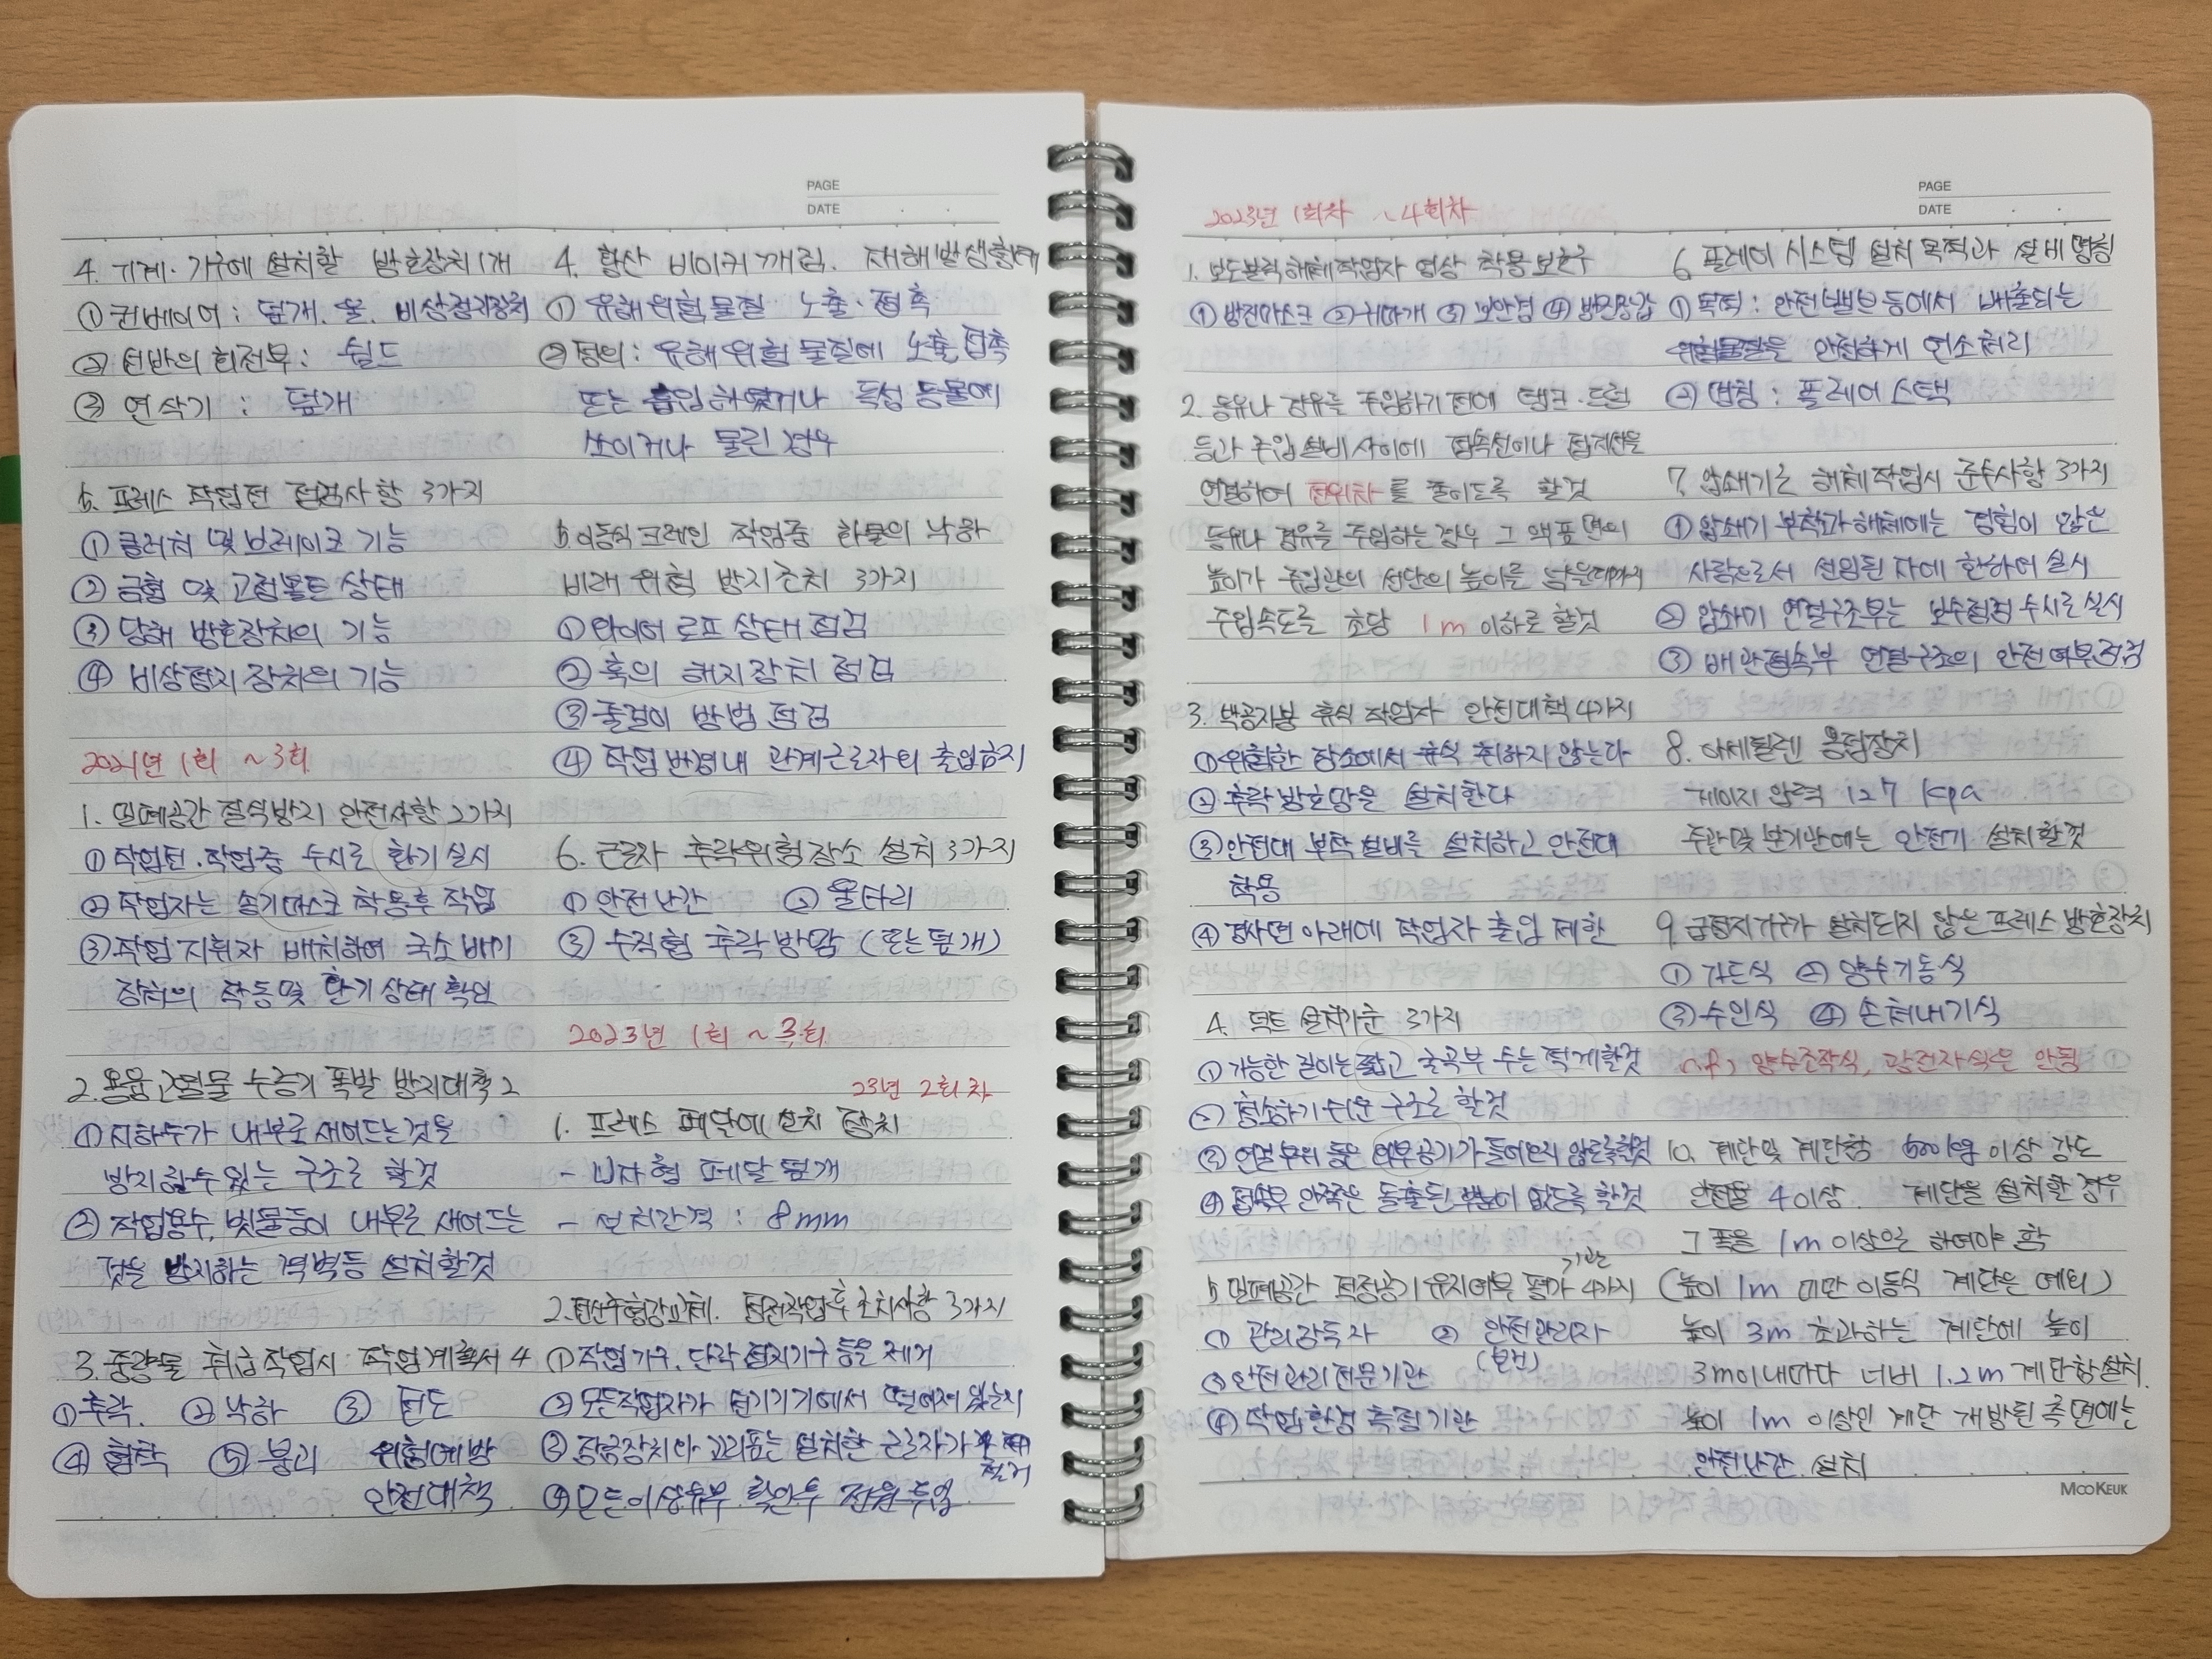 PAGE
DATE
4. 기계·기구에 설치할 방호장치 1개
① 컨베이어 : 덮개. 울. 비상정지장치
② 선반의 회전부 : 쉴드
③ 연삭기 : 덮개
5. 프레스 작업전 점검사항 3가지
① 클러치 및 브레이크 기능
② 금형 및 고정볼트 상태
③ 당해 방호장치의 기능
④ 비상정지 장치의 기능
2021년 1회 ~3회
1. 밀폐공간 질식방지 안전사항 2가지
① 작업전·작업중 수시로 환기 실시
② 작업자는 송기마스크 착용후 작업
③ 작업 지휘자 배치하여 국소배기
장치의 작동 및 환기 상태 확인
2. 용융고열물 수증기 폭발 방지대책 2
① 지하수가 내부로 새어드는것을
방지할수 있는 구조로 할것
② 작업용수, 빗물등이 내부로 새어드는
것을 방지하는 격벽등 설치할것
3. 중량물 취급작업시 작업계획서 4
① 추락. ② 낙하 ③ 전도
④ 협착 ⑤ 붕괴 위험예방
안전대책
4. 황산 비이커 깨짐. 재해발생형태
① 유해위험물질 노출·접촉
② 정의 : 유해위험물질에 노출접촉
또는 흡입하였거나 독성 동물에
쏘이거나 물린 경우
5. 이동식크레인 작업중 화물의 낙하
비래 위험 방지조치 3가지
① 와이어 로프 상태 점검
② 훅의 해지장치 점검
③ 줄걸이 방법 점검
④ 작업 반경내 관계근로자외 출입금지
6. 근로자 추락위험장소 설치 3가지
① 안전난간 ② 울타리
③ 수직형 추락방망 (또는 덮개)
2023년 1회 ~3회
23년 2회차
1. 프레스 페달에 설치 장치
- U자형 페달 덮개
- 설치간격 : 8mm
2. 정전작업후 조치사항 3가지
① 작업기구, 단락 접지기구 등을 제거
② 모든작업자가 전기기기에서 떨어져 있는지
③ 잠금장치와 꼬리표는 설치한 근로자가
철거
④ 모든이상유무 확인후 전원투입
PAGE
DATE
2023년 1회차 ~4회차
1. 보도블럭해체작업자 영상 착용보호구
① 방진마스크 ② 귀마개 ③ 보안경 ④ 방진장갑
2. 등유나 경유를 주입하기 전에 탱크·드럼
등과 주입설비사이에 접속선이나 접지선을
연결하여 전위차를 줄이도록 할것
등유나 경유를 주입하는 경우 그 액표면의
높이가 주입관의 선단의 높이를 넘을때까지
주입속도를 초당 1m 이하로 할것
3. 박공지붕 휴식 작업자 안전대책 4가지
① 위험한 장소에서 휴식 취하지 않는다
② 추락방호망을 설치한다
③ 안전대 부착설비를 설치하고 안전대
착용
④ 경사면 아래에 작업자 출입 제한
4. 덕트 설치기준 3가지
① 가능한 길이는 짧고 굴곡부 수는 적게할것
② 청소하기 쉬운 구조로 할것
③ 연결부위 등은 외부공기가 들어오지 않도록할것
④ 접속부 안쪽은 돌출된 부분이 없도록 할것
기관
5. 밀폐공간 적정공기 유지여부 평가 4가지
① 관리감독자 ② 안전관리자
(보건)
③ 안전관리전문기관
④ 작업환경 측정기관
6. 플레어 시스템 설치 목적과 설비 명칭
① 목적 : 안전밸브 등에서 배출되는
위험물질을 안전하게 연소처리
② 명칭 : 플레어스택
7. 압쇄기로 해체작업시 준수사항 3가지
① 압쇄기 부착과 해체에는 경험이 많은
사람으로서 선임된 자에 한하여 실시
② 압쇄기 연결구조부는 보수점검 수시로 실시
③ 배관접속부 연결구조의 안전여부점검
8. 아세틸렌 용접장치
게이지 압력 127 kpa
주관 및 분기관에는 안전기 설치할것
9. 급정지기구가 설치되지 않은 프레스 방호장치
① 가드식 ② 양수기동식
③ 수인식 ④ 손쳐내기식
양수조작식, 광전자식은 안됨
10. 계단 및 계단참 500이상 강도
안전율 4이상. 계단을 설치할 경우
그 폭을 1m 이상으로 하여야 함
(높이 1m 미만 이동식 계단은 예외)
높이 3m 초과하는 계단에 높이
3m이내마다 너비 1.2m 계단참설치.
높이 1m 이상인 계단 개방된 측면에는
안전난간 설치
MOOKEUK